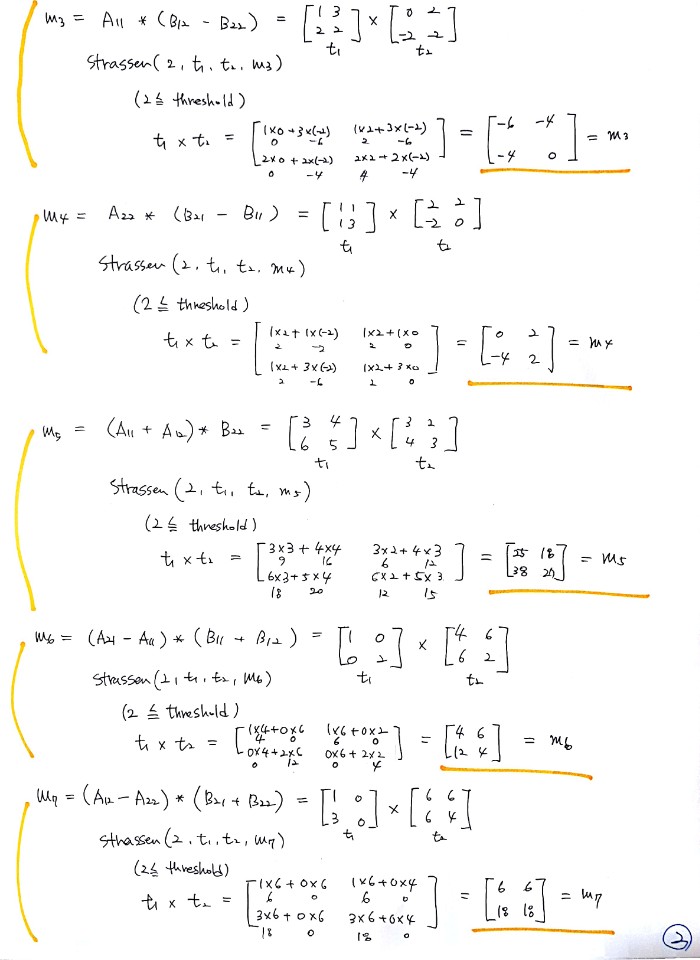 m3 = A11 * (B12 - B22) = [1 3 2 2] × [0 2 -2 -2]
t1 t2
Strassen(2, t1, t2, m3)
(2 ≤ threshold)
t1 × t2 = [1×0+3×(-2) 1×2+3×(-2) = [-6 -4 = m3
0 -6 2 -6
2×0+2×(-2) 2×2+2×(-2)] -4 0]
0 -4 4 -4
m4 = A22 * (B21 - B11) = [1 1 1 3] × [2 2 -2 0]
t1 t2
Strassen(2, t1, t2, m4)
(2 ≤ threshold)
t1 × t2 = [1×2+1×(-2) 1×2+1×0 = [0 2 = m4
2 -2 2 0
1×2+3×(-2) 1×2+3×0] -4 2]
2 -6 2 0
m5 = (A11 + A12) * B22 = [3 4 6 5] × [3 2 4 3]
t1 t2
Strassen(2, t1, t2, m5)
(2 ≤ threshold)
t1 × t2 = [3×3+4×4 3×2+4×3 = [25 18 = m5
9 16 6 12
6×3+5×4 6×2+5×3] 38 27]
18 20 12 15
m6 = (A21 - A11) * (B11 + B12) = [1 0 0 2] × [4 6 6 2]
t1 t2
Strassen(2, t1, t2, m6)
(2 ≤ threshold)
t1 × t2 = [1×4+0×6 1×6+0×2 = [4 6 = m6
4 0 6 0
0×4+2×6 0×6+2×2] 12 4]
0 12 0 4
m7 = (A12 - A22) * (B21 + B22) = [1 0 3 0] × [6 6 6 4]
t1 t2
Strassen(2, t1, t2, m7)
(2 ≤ threshold)
t1 × t2 = [1×6+0×6 1×6+0×4 = [6 6 = m7
6 0 6 0
3×6+0×6 3×6+0×4] 18 18]
18 0 18 0
2